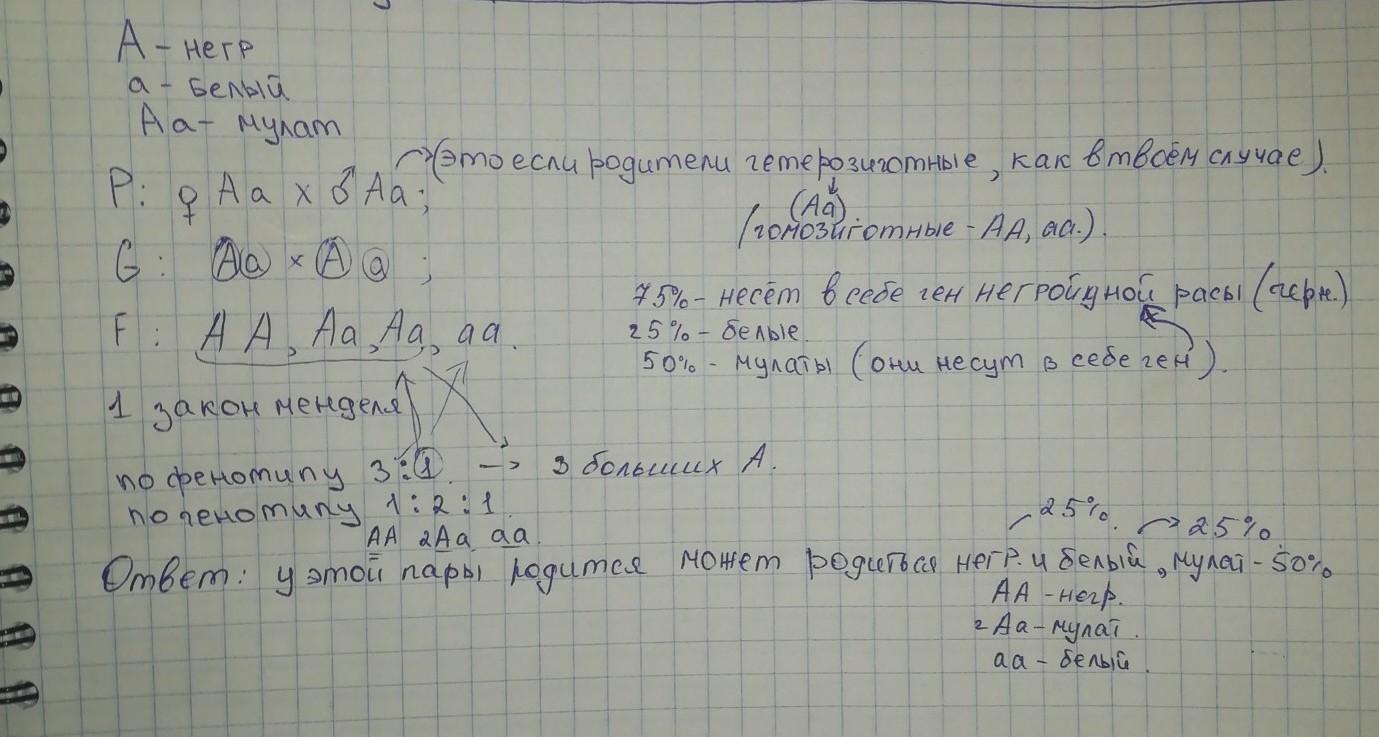 А - негр
а - белый
Аа - мулат
(это если родители гетерозиготные, как в твоём случае).
P: ♀ Аа х ♂ Аа;
(Аа)
(гомозиготные - АА, аа.).
G: Аа × А а ;
75% - несёт в себе ген негройдной расы (черн.)
F: АА, Аа, Аа, аа.
25% - белые.
50% - мулаты (они несут в себе ген).
1 закон менделя
по фенотипу 3:1 → 3 больших А.
по генотипу 1:2:1
АА 2Аа аа.
25%. → 25%.
Ответ: у этой пары родится может родиться негр. и белый, мулат - 50%
АА - негр.
2 Аа - мулат.
аа - белый.